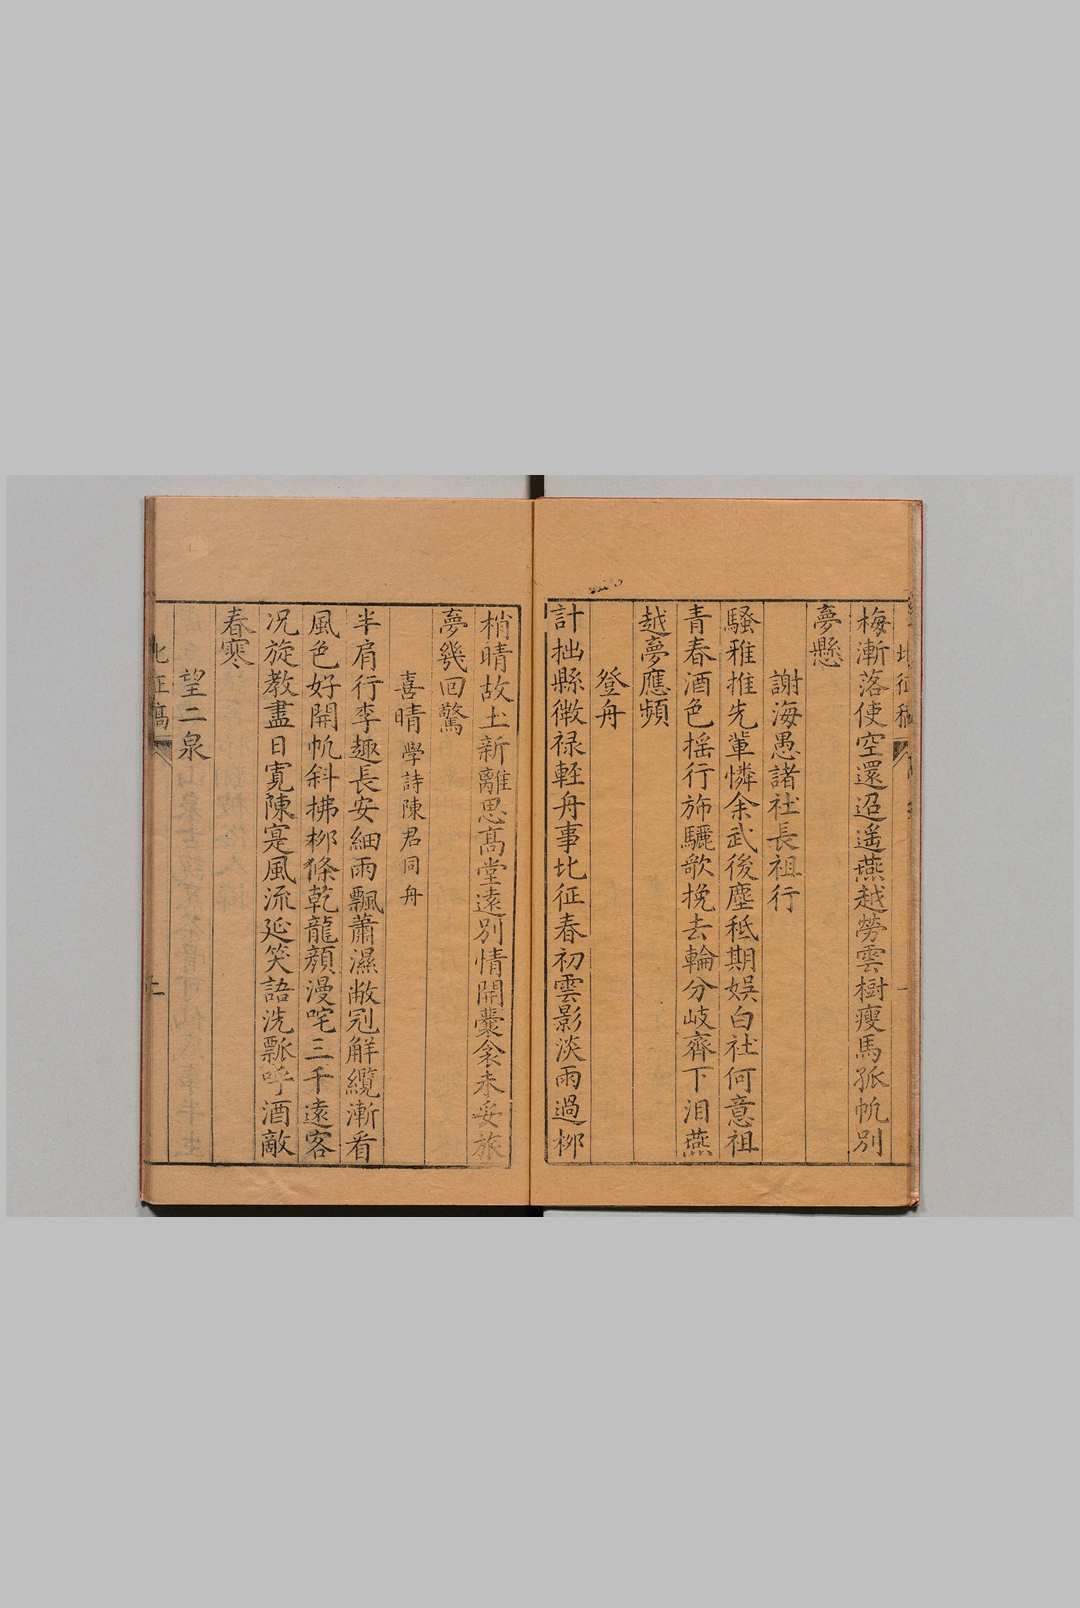 梅漸落使空還迢遥燕越勞雲樹瘦馬孤帆別
夢懸
謝海愚諸社長祖行
騷雅推先軰憐余武後塵秪期娱白社何意祖
青春酒色搖行斾驪歌挽去輪分岐齊下泪燕
越夢應頻
登舟
計拙縣微禄輊舟事北征春初雲影淡雨過柳
梢晴故土新離思髙堂遠別情開囊衾未妥旅
夢幾回驚
喜晴 學詩陳君同舟
半肩行李趣長安細雨飄蕭濕敝冠觧纜漸看
風色好開帆斜拂柳條乾龍顔漫咤三千遠客
况旋教盡日寛陳寔風流延笑語洗瓢呼酒敵
春寒
望二泉
北征稿